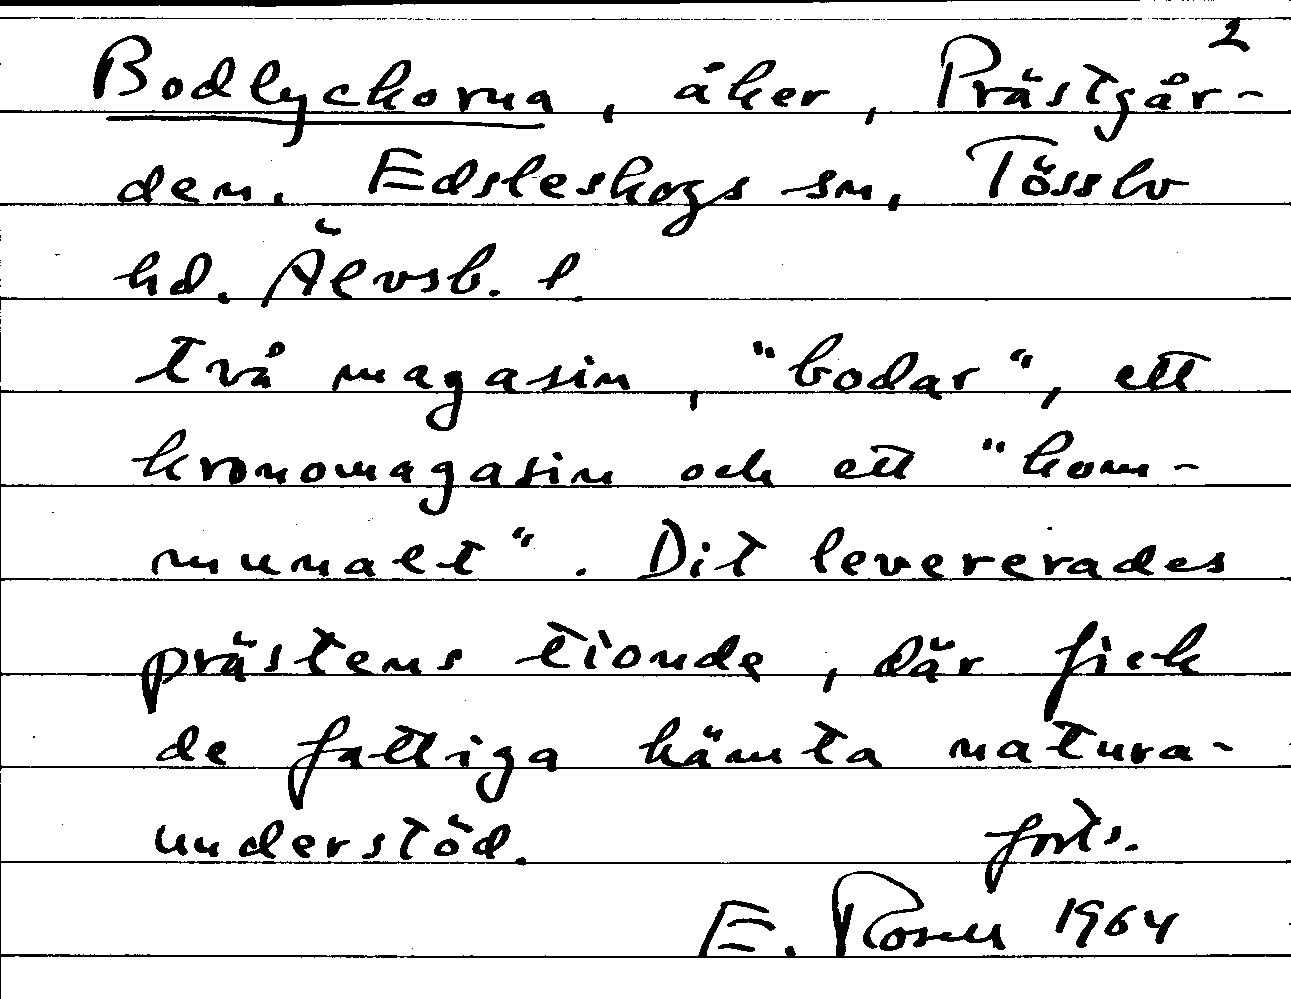 2
Bodlyckorna, åker, Prästgår-
den. Edsleskogs sn, Tössbo
hd. Älvsb. l.
två magasin, "bodar", ett
kronomagasin och ett "kom-
munalt". Dit levererades
prästens tionde, där fick
de fattiga hämta natura-
understöd. forts.
E. Rosell 1964